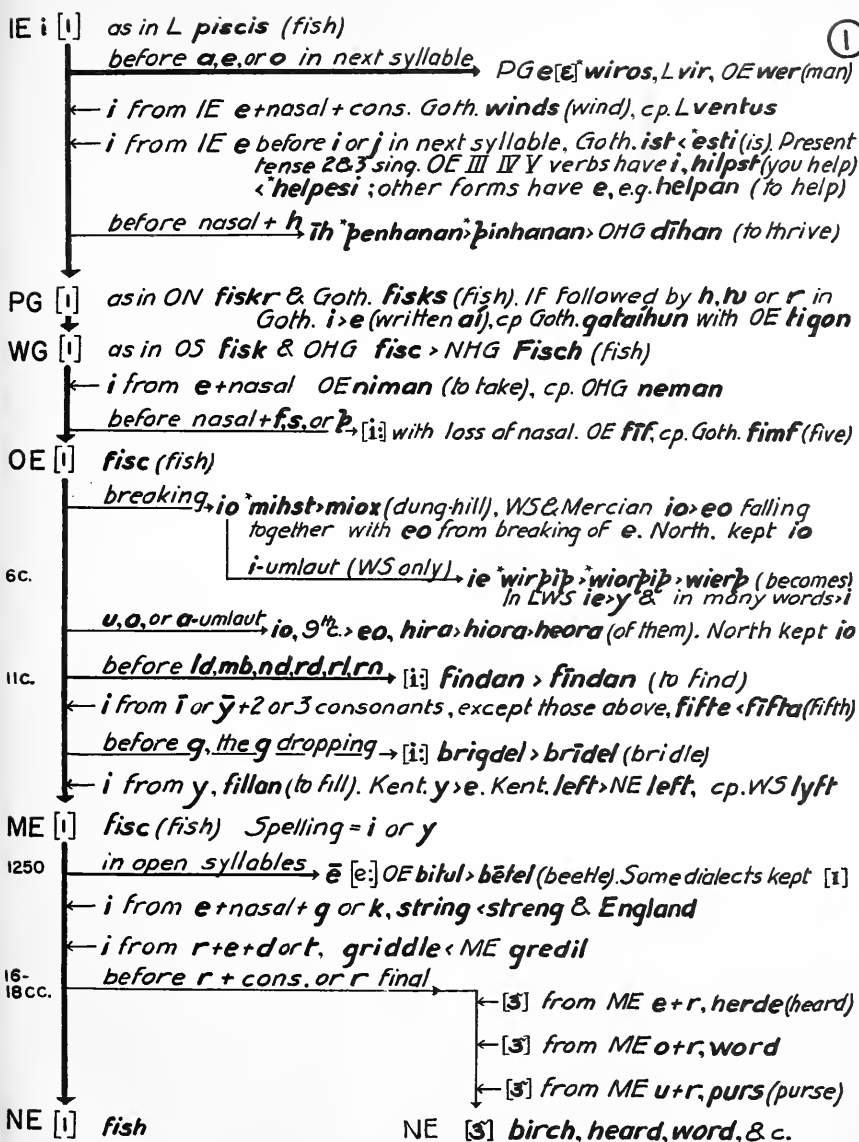 IE i [ɪ] as in L piscis (fish)
①
before a, e, or o in next syllable → PG e[ɛ] *wiros, L vir, OE wer (man)
← i from IE e + nasal + cons. Goth. winds (wind), cp. L ventus
← i from IE e before i or j in next syllable, Goth. ist < *esti (is). Present
tense 2&3 sing. OE III IV V verbs have i, hilpst (you help)
< *helpesi ; other forms have e, e.g. helpan (to help)
before nasal + h → īh *þenhanan > *þinhanan > OHG dīhan (to thrive)
PG [ɪ] as in ON fiskr & Goth. fisks (fish). IF followed by h, ƕ or r in
Goth. i > e (written ai), cp Goth. gataihun with OE tigon
WG [ɪ] as in OS fisk & OHG fisc > NHG Fisch (fish)
← i from e + nasal OE niman (to take), cp. OHG neman
before nasal + f, s, or þ → [i:] with loss of nasal. OE fīf, cp. Goth. fimf (five)
OE [ɪ] fisc (fish)
breaking → io *mihst > miox (dung-hill), WS & Mercian io > eo falling
together with eo from breaking of e. North. kept io
6c. i-umlaut (WS only) → ie *wirþiþ > *wiorþiþ > wierþ (becomes)
In LWS ie > y & in many words > i
u, o, or a-umlaut → io, 9th c. > eo, hira > hiora > heora (of them). North kept io
11c. before ld, mb, nd, rd, rl, rn → [i:] findan > fīndan (to find)
← i from ī or ȳ + 2 or 3 consonants, except those above, fifte < fīfta (fifth)
before g, the g dropping → [i:] brigdel > brīdel (bridle)
← i from y, fillan (to fill). Kent. y > e. Kent. left > NE left, cp. WS lyft
ME [ɪ] fisc (fish) Spelling = i or y
1250 in open syllables → ē [e:] OE bitul > bētel (beetle). Some dialects kept [ɪ]
← i from e + nasal + g or k, string < streng & England
← i from r + e + d or t, griddle < ME gredil
16-18cc. before r + cons. or r final
← [ɜ] from ME e + r, herde (heard)
← [ɜ] from ME o + r, word
← [ɜ] from ME u + r, purs (purse)
NE [ɪ] fish NE [ɜ] birch, heard, word, & c.